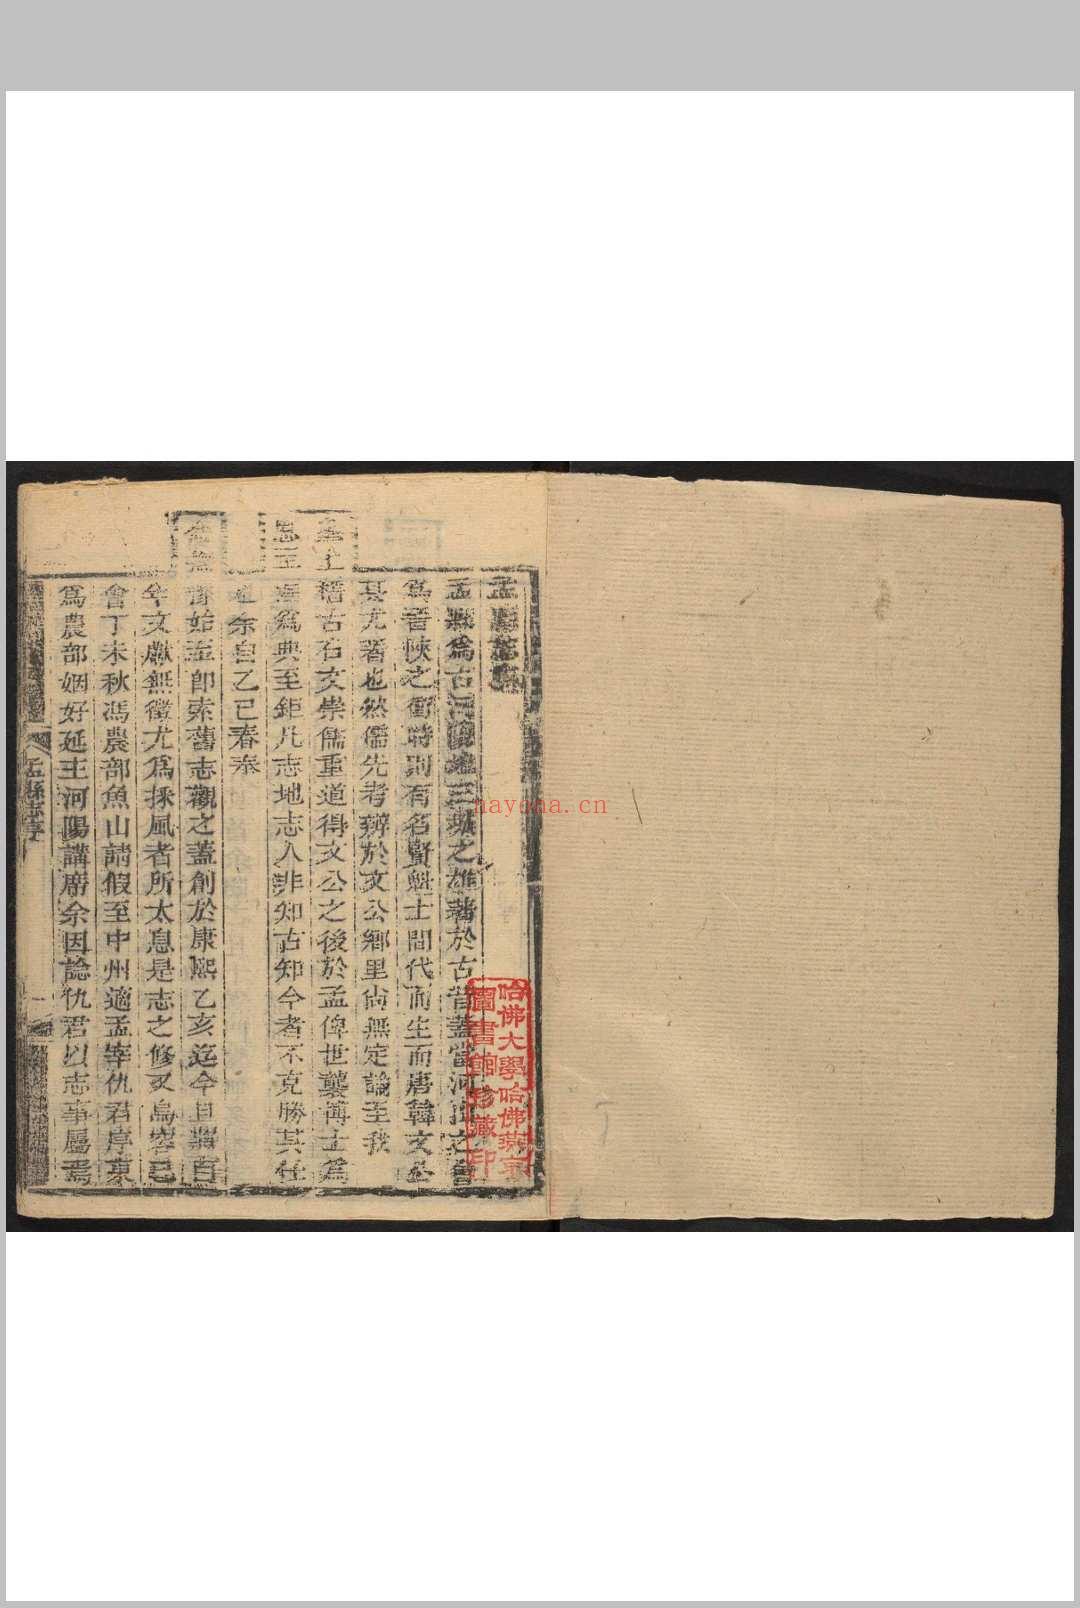 孟縣志序
孟縣爲古河陽地三城之雄著於古昔蓋當河孟之會
爲晉陝之衝時則有名賢魁士間代而生而唐韓文公
其尤著也然儒先考辨於文公鄉里尚無定論至我
聖上稽古右文崇儒重道得文公之後於孟俾世襲博士爲
典至鉅凡志地志人非知古知今者不克勝其任
余自乙巳春奉
命 始孟卽索舊志觀之蓋創於康熙乙亥迄今且將百
年文獻無徵尤爲採風者所太息是志之修又烏容已
會丁未秋馮農部魚山請假至中州適孟宰仇君序東
爲農部姻好延主河陽講席余因諗仇君以志事屬焉
孟縣志序
一
哈佛大學哈佛燕京
圖書館珍藏印
nayona.cn